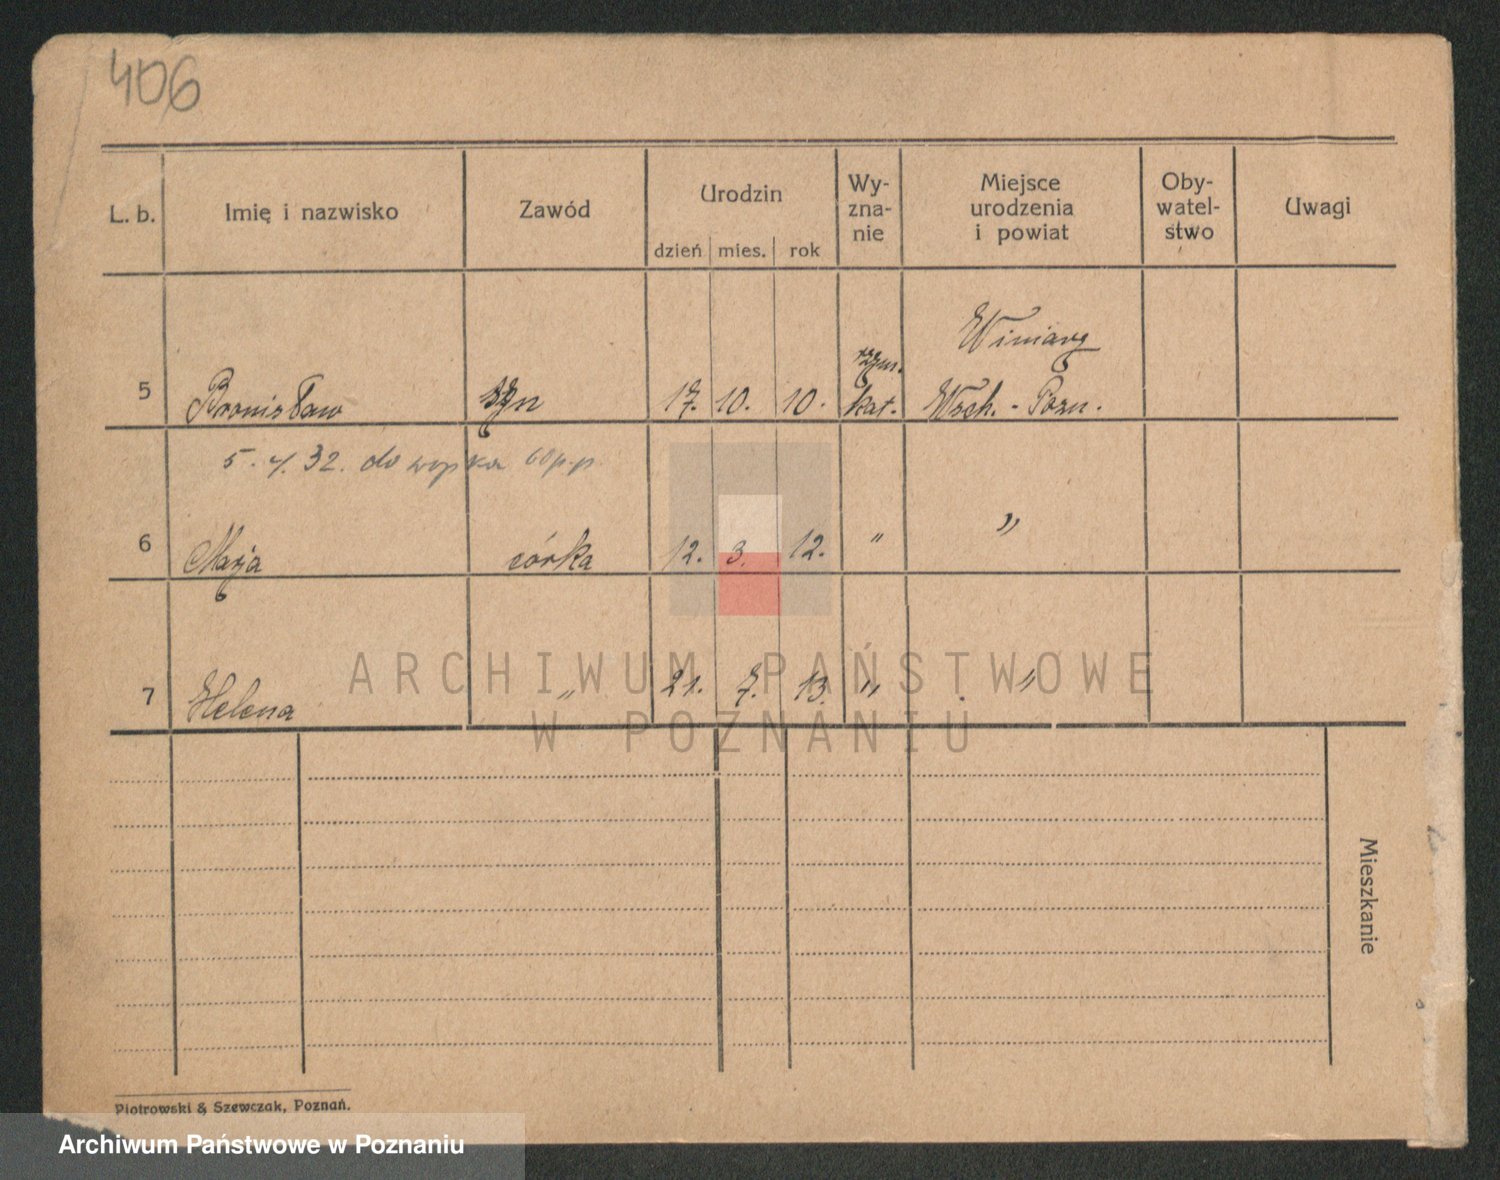 406
L. b. Imię i nazwisko Zawód Urodzin dzień mies. rok Wy-zna-nie Miejsce urodzenia i powiat Oby-watel-stwo Uwagi
Winiary
rzym.
5 Bronisław syn 17. 10. 10. kat. Wsch. - Pozn.
5. 4. 32. do wojska 60 p.p.
6 Marja córka 12. 3. 12. " "
7 Helena " 21. 7. 13. " "
Mieszkanie
Piotrowski & Szewczak, Poznań.
ARCHIWUM PAŃSTWOWE
W POZNANIU
Archiwum Państwowe w Poznaniu